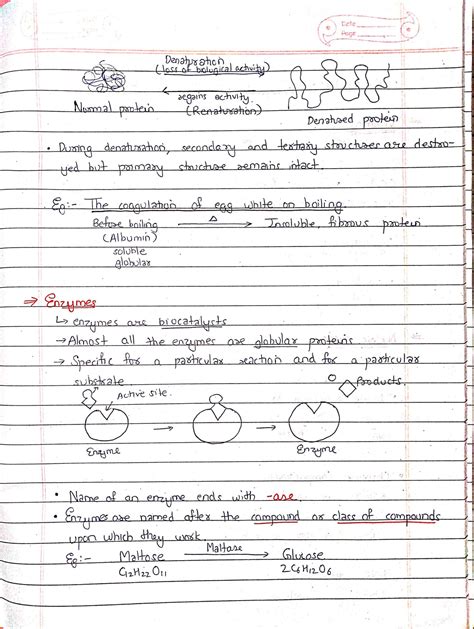 Date
Page
Denaturation
(loss of biological activity)
regains activity
(Renaturation)
Normal protein
Denatured protein
• During denaturation, secondary and tertiary structures are destro-
yed but primary structure remains intact.
Eg:- The coagulation of egg white on boiling.
Before boiling Δ Insoluble, fibrous protein
(Albumin)
soluble
globular
⇒ Enzymes
↳ enzymes are biocatalysts
→ Almost all the enzymes are globular proteins
→ Specific for a particular reaction and for a particular
substrate
Active site. Products.
Enzyme Enzyme
• Name of an enzyme ends with -ase.
• Enzymes are named after the compound or class of compounds
upon which they work.
Eg:- Maltose Maltase → Glucose
C12H22O11 2C6H12O6